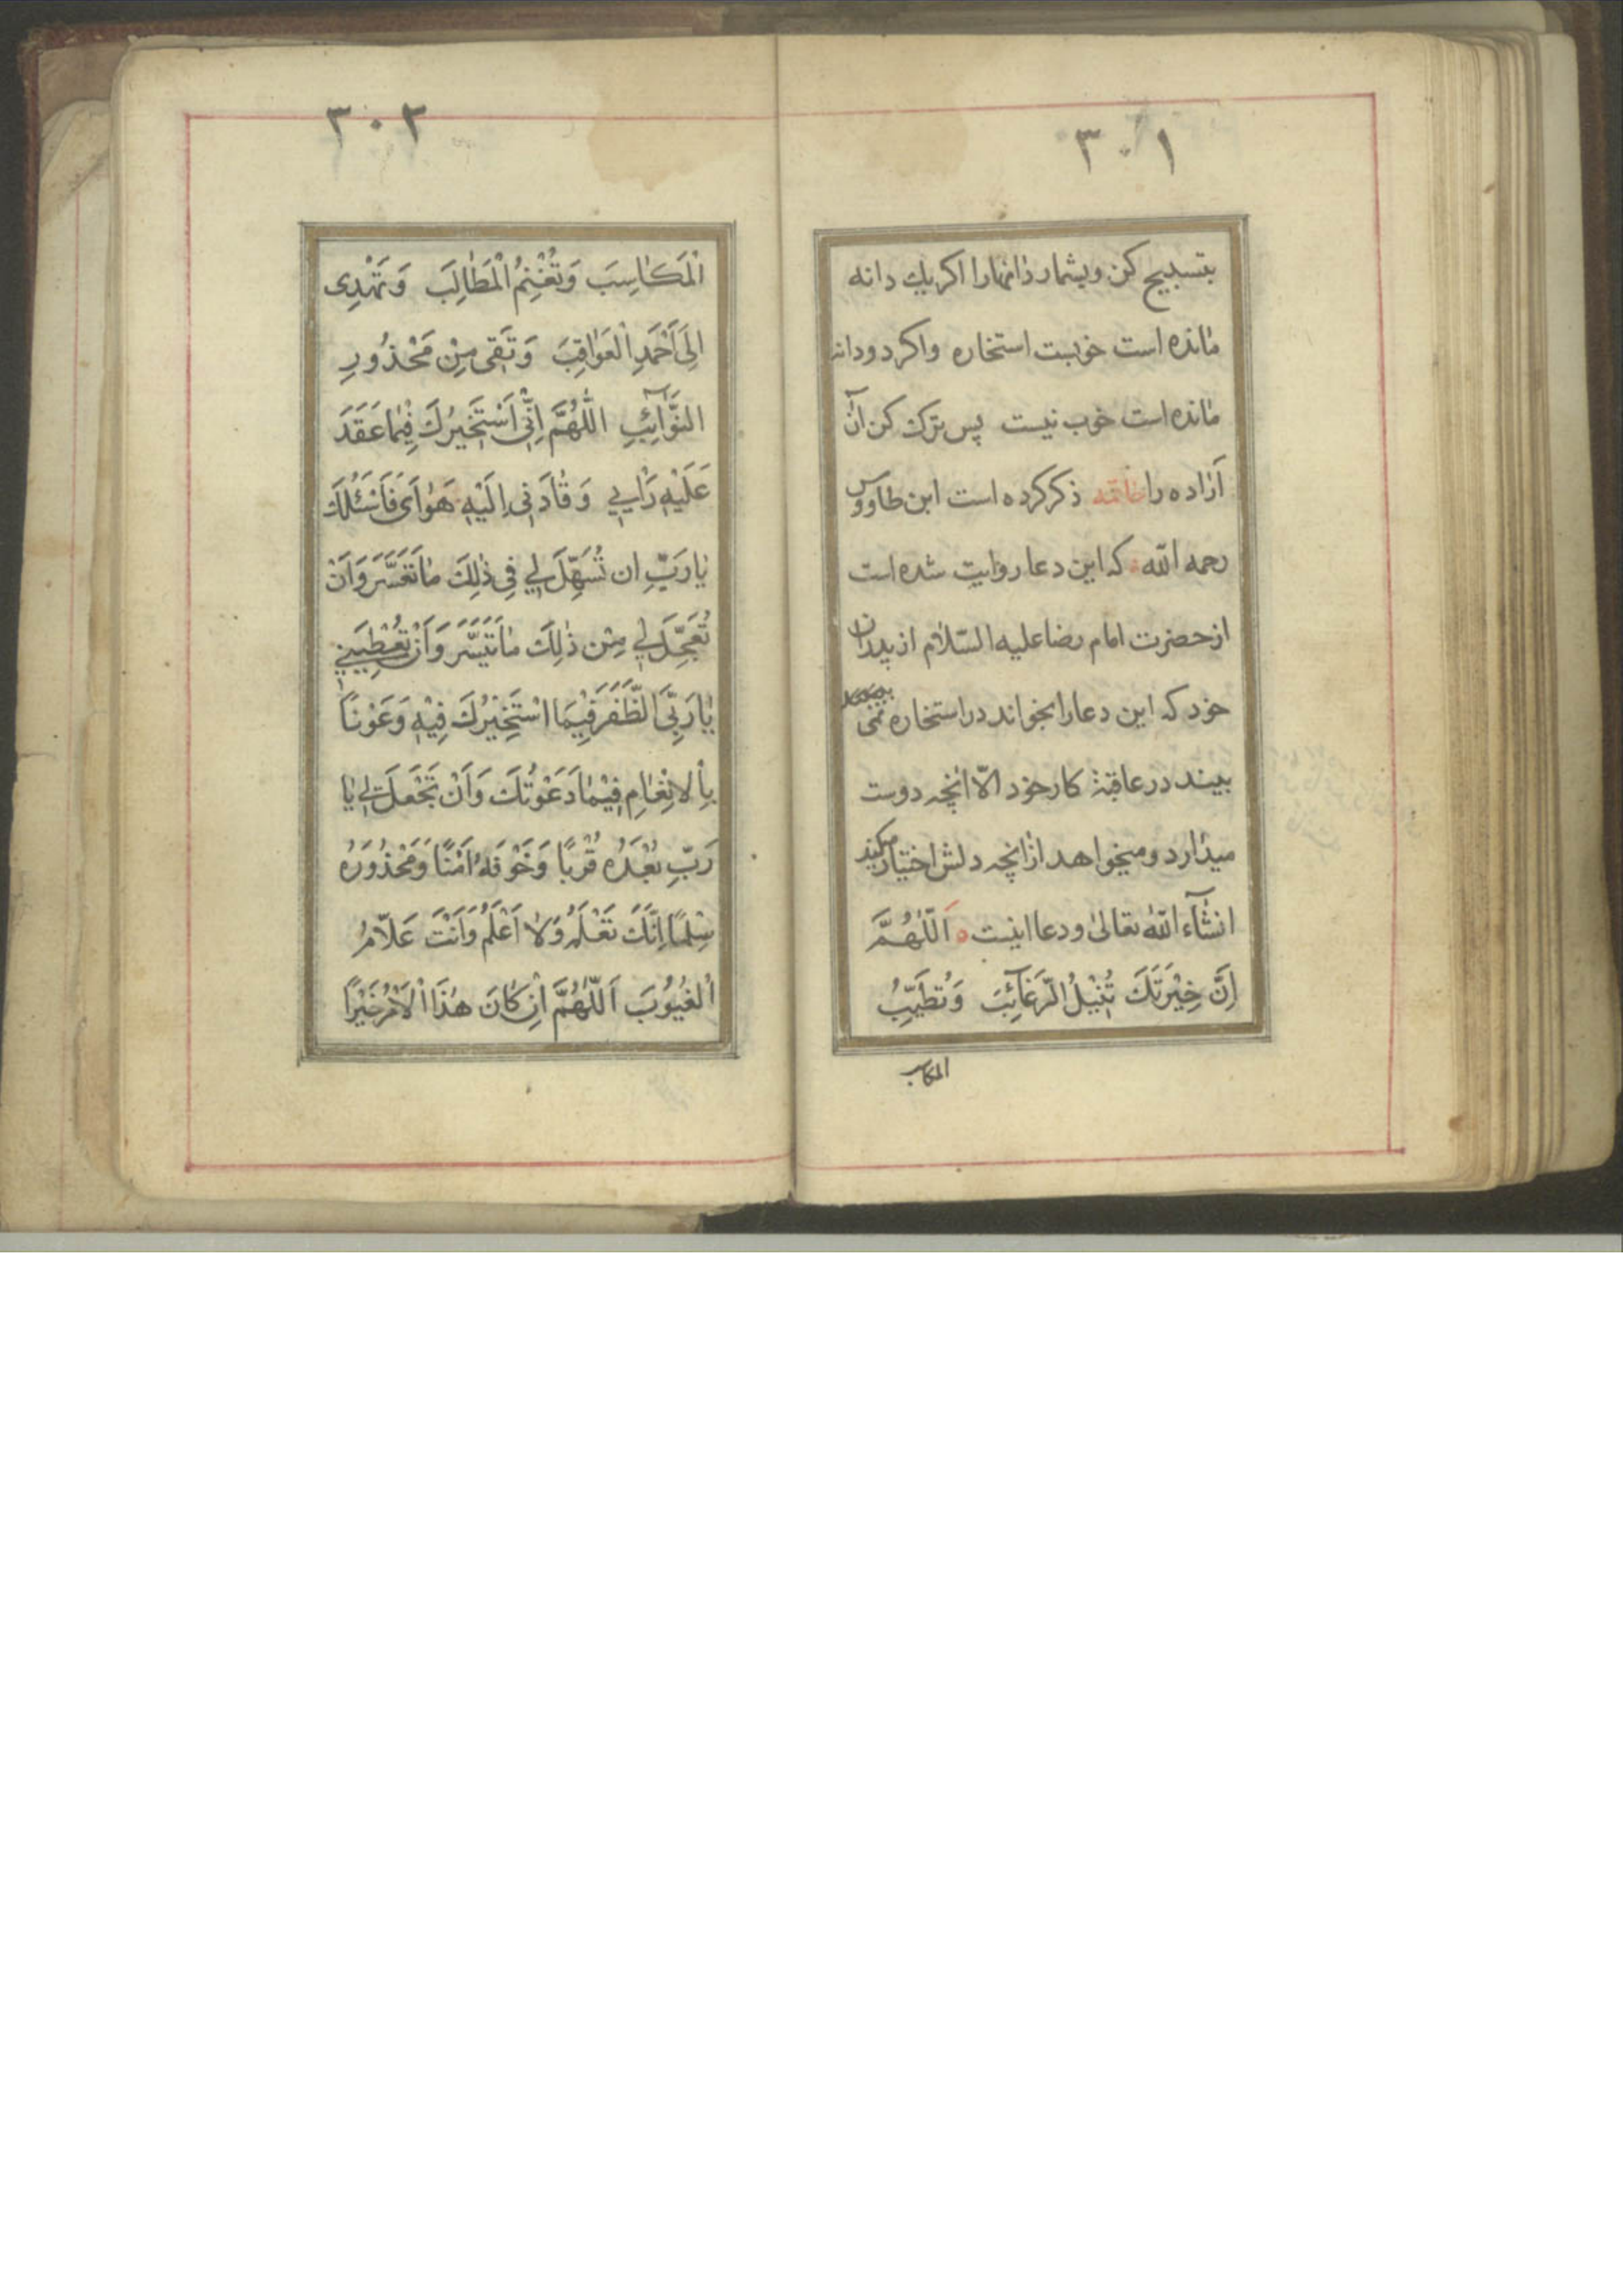 ٣٠١
بتسبیح کن و بشمار دانهارا اکر یك دانه
مانده است خوبست استخاره واکر دودانه
مانده است خوب نیست پس ترک کن آن
آزاده را خاتمه ذکر کرده است ابن طاووس
رحمه الله که این دعا روایت شده است
از حضرت امام رضا علیه السّلام از پدران
خود که این دعا را بخواند در استخاره نمی
بیند در عاقبة کار خود الّا انچه دوست
میدارد و میخواهد از انچه دلش اختیار میکند
انشآء الله تعالیٰ و دعا اینست اَللّٰهُمَّ
اِنَّ خِیْرَتَكَ تُنْیلُ الرَّغَآئِبَ وَ تُطَیِّبُ
المکاسب
٣٠٢
اْلمَکٰاسِبَ وَ تُغْنِمُ الْمَطٰالِبَ وَ تَهْدِی
اِلیَ اَحْمَدِ اْلعَوٰاقِبَ وَ تَقی مِنْ مَحْذُورِ
النَّوٰآئِبِ اللّٰهُمَّ اِنّی اَسْتَخیرُكَ فیٖمٰا عَقَدَ
عَلَیْهِ رَاْیي وَ قٰادَنی اِلَیْهِ هَوٰایَ فَاَسْئَلُكَ
یٰا رَبِّ ان تُسَهِّلَ لي فی ذٰلِكَ مٰا تَعَسَّرَ وَ اَنْ
تُعَجِّلَ لي مِنْ ذٰلِكَ مٰا تَیَسَّرَ وَ اَنْ تُعْطِیَنِي
یٰا رَبِّی الظَّفَرَ فیٖمَا اسْتَخیرُكَ فیٖهِ وَ عَوْناً
بِاْلاِنْعٰامِ فیٖمٰا دَعَوْتُكَ وَ اَنْ تَجْعَلَ لي یٰا
رَبِّ بُعْدَهُ قُرْبًا وَ خَوْفَهُ اَمْنًا وَ مَحْذُورَهُ
سِلْمًا اِنَّكَ تَعْلَمُ وَ لٰا اَعْلَمُ وَ اَنْتَ عَلّٰامُ
اْلغُیُوُبَ اَللّٰهُمَّ اِنْ کٰانَ هٰذَا اْلاَمْرُ خَیْرًا